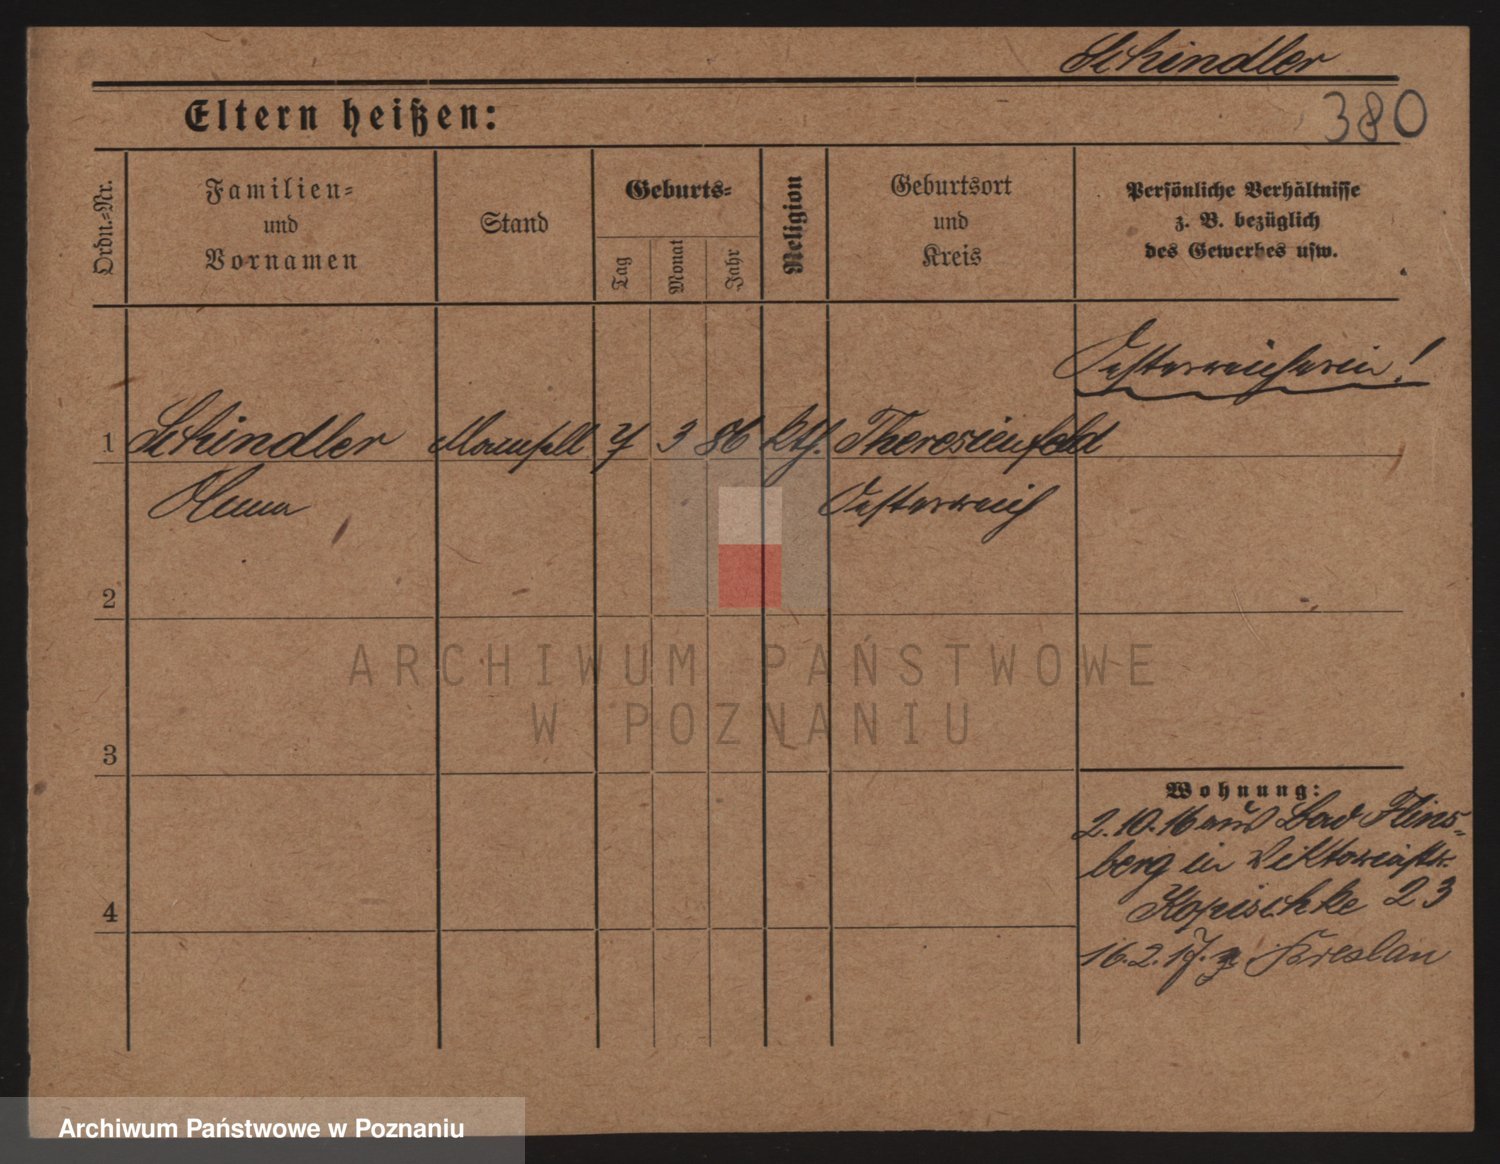 Schindler
380
Eltern heißen:
Ordn.-Nr.
Familien-
und
Vornamen
Stand
Geburts-
Tag
Monat
Jahr
Religion
Geburtsort
und
Kreis
Persönliche Verhältnisse
z. B. bezüglich
des Gewerbes usw.
Oesterreicherin!
1 Schindler Mamsell 7 3 86 kth. Theresienfeld
Oesterreich
2
3
4
Wohnung:
2.10.16 aus Bad Flins-
berg in Viktoriastr.
Kopischke 23
16.2.17. z. Breslau
ARCHIWUM PAŃSTWOWE
W POZNANIU
Archiwum Państwowe w Poznaniu